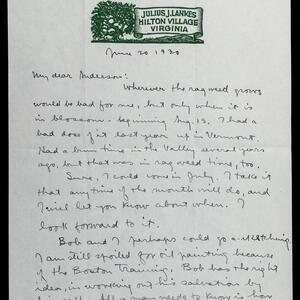 JULIUS J. LANKES
HILTON VILLAGE
VIRGINIA
June 20 1930
My dear Anderson:
Wherever the rag weed grows
would be bad for me, but only when it is
in blossom - beginning Aug. 15. I had a
bad dose of it last year up in Vermont.
Had a bum time in the Valley several years
ago, but that was in rag weed time, too.
Sure, I could come in July. I take it
that any time of the month will do, and
I will let you know about when. I
look forward to it.
Bob and I perhaps could go a-sketching.
I am still spoiled for oil painting because
of the Boston Training. Bob has the right
idea, in working out his salvation by
himself. All a man needs to know is how